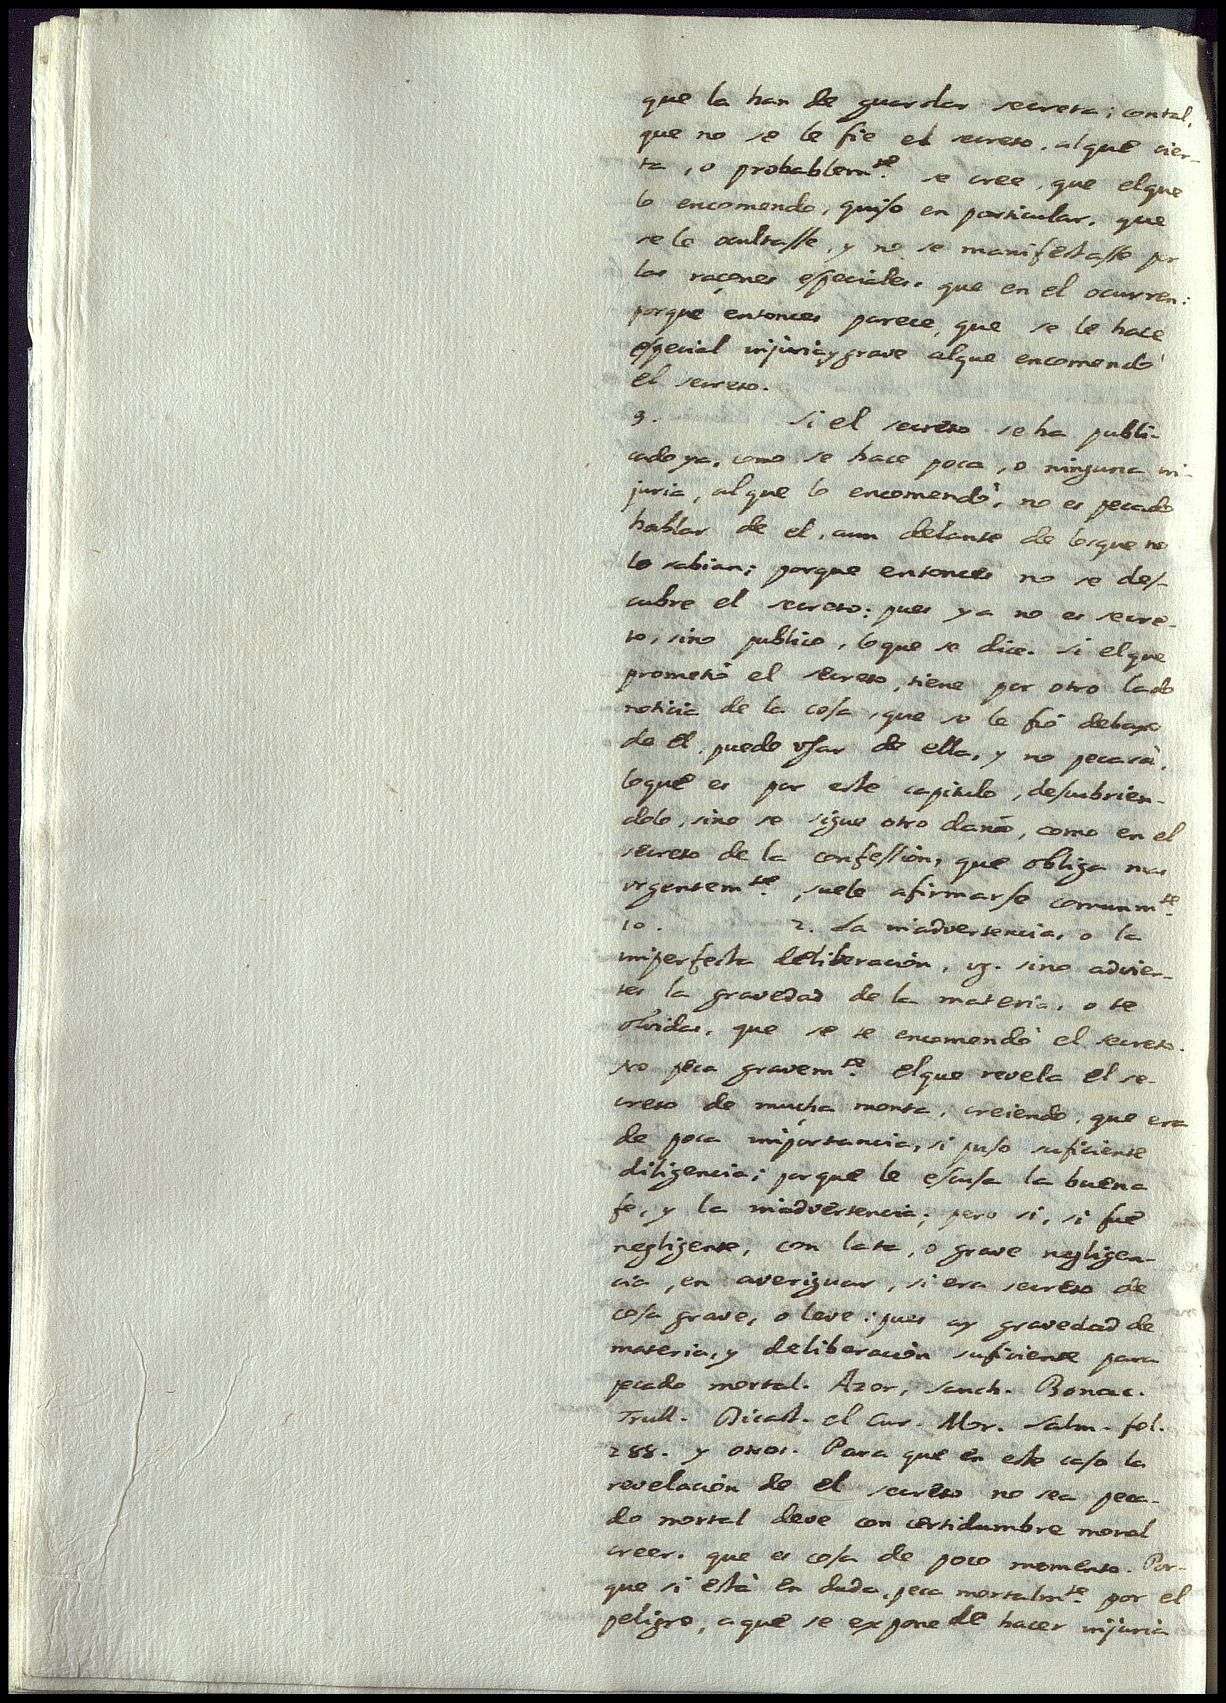 que la han de guardar secreta; contal,
que no se le fie el secreto, alque cier-
ta, o probablemte. se cree, que elque
lo encomendo, quiso en particular, que
se le ocultasse, y no se manifestasse pr
las raçones especiales, que en el ocurren:
porque entonces parece, que se le hace
especial injuria y grave alque encomendò
el secreto.
9. Si el secreto se ha publi-
cado ya, como se hace poca, o ninguna in-
juria, al que lo encomendò, no es pecado
hablar de el, aun delante de losque no
lo sabian; porque entonces no se des-
cubre el secreto: pues ya no es secre-
to, sino publico, loque se dice. Si elque
prometiò el secreto, tiene por otro lado
noticia de la cosa, que se le fiò debaxo
de èl, puede usar de ella, y no pecarà,
loque es por este capitulo, descubrien-
dolo, sino se sigue otro daño, como en el
secreto de la confession, que obliga mas
urgentemte., suele afirmarse comunmte.
10. 2. La inadvertencia, o la
imperfecta deliberación, vg. sino advier-
tes la gravedad de la materia, o te
olvidas, que se te encomendò el secreto.
No peca gravemte. elque revela el se-
creto de mucha monta, creiendo, que era
de poca importancia, si puso suficiente
diligencia; porque le escusa la buena
fe, y la inadvertencia; pero si, si fuè
negligente, con lata, o grave negligen-
cia, en averiguar, si era secreto de
cosa grave, o leve: pues ay gravedad de
materia, y deliberación suficiente para
pecado mortal. Azor, Sanch. Bonac.
Trull. Dicast. el Cur. Mor. Salm. fol.
288. y otros. Para que en este caso la
revelación de el secreto no sea peca-
do mortal deve con certidumbre moral
creer, que es cosa de poco momento. Por-
que si està en duda, peca mortalmte. por el
peligro, aque se expone de hacer injuria